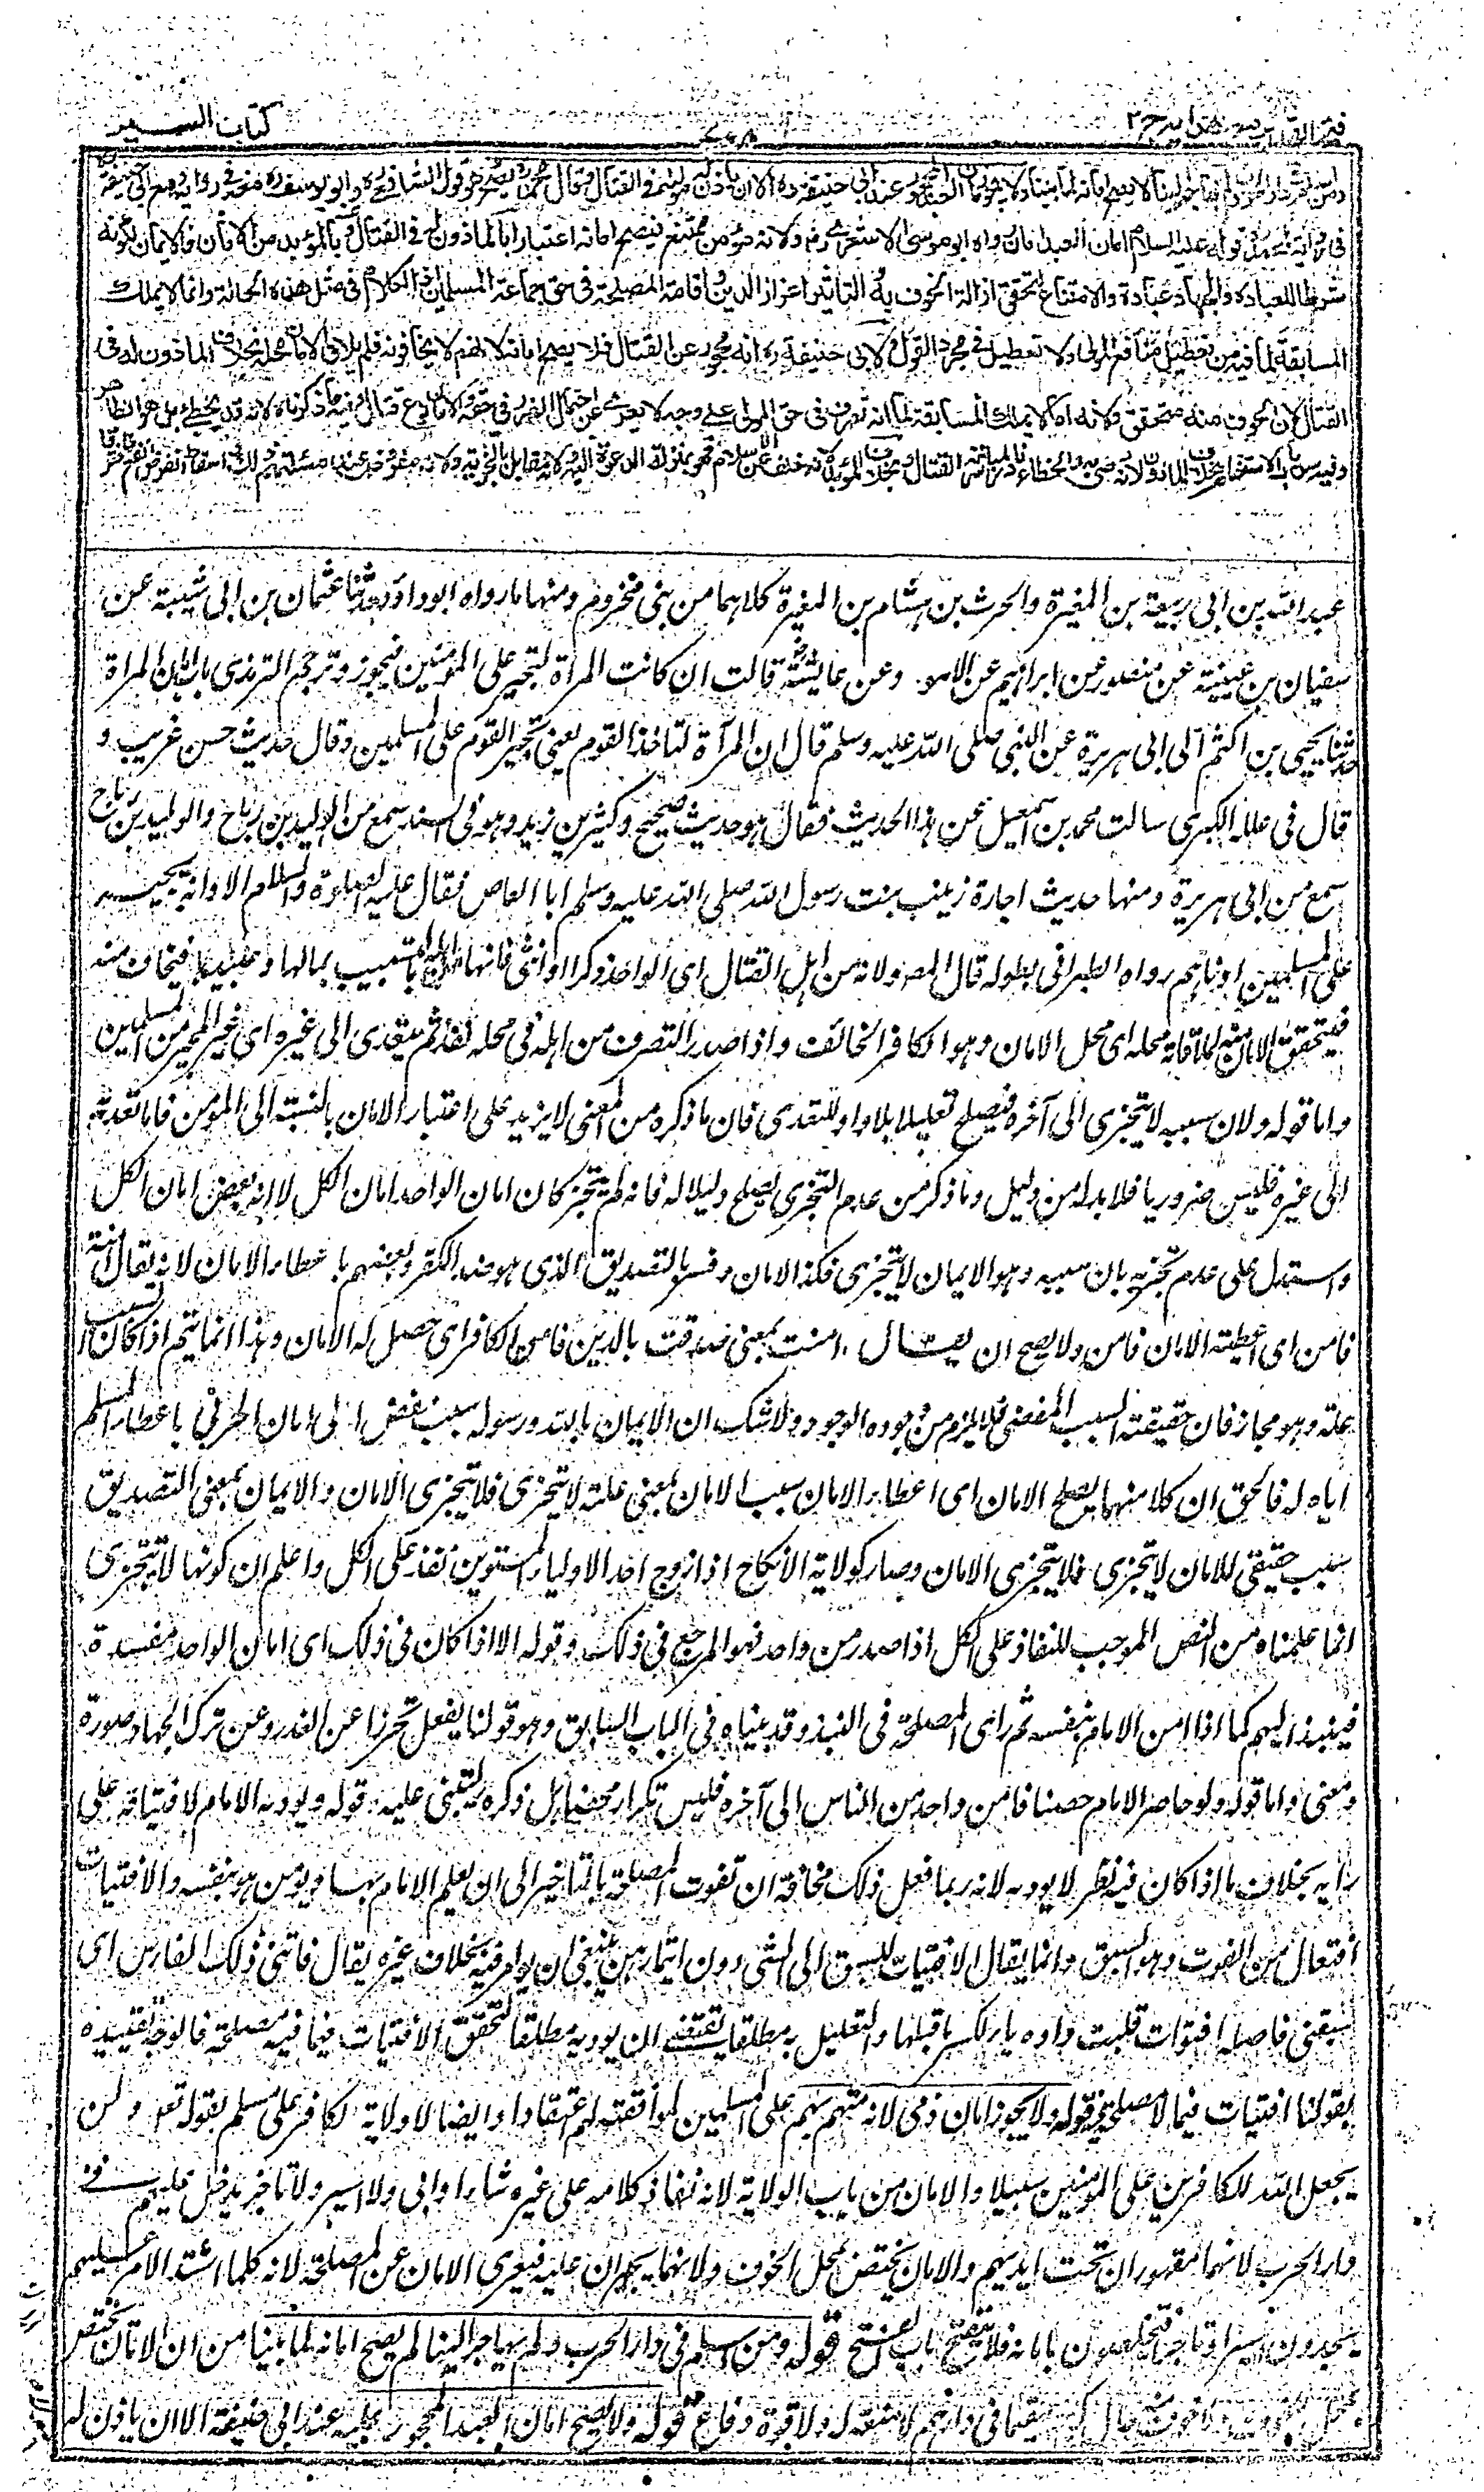 فتح القدير مع هدايه ج ٢
كتاب السير
ومن اسلم في دار الحرب ولم يهاجر الينا لا يصح امانه لما بينا ولا يجوز امان العبد المحجور عند ابي حنيفة ره الا ان ياذن له مولاه في القتال وقال محمد ره يصح وهو قول الشافعي ره وابو يوسف ره معه في رواية ومع ابي حنيفة ره
في رواية لمحمد ره قوله عليه السلام امان العبد امان رواه ابو موسى الاشعري رض ولانه مؤمن ممتنع فيصح امانه اعتبارا بالماذون له في القتال وبالمؤبد من الامان فالايمان لكونه
شرطا للعبادة والجهاد عبادة والامتناع لتحقق ازالة الخوف به والتاثير اعزاز الدين واقامة المصلحة في حق جماعة المسلمين اذ الكلام في مثل هذه الحالة وانما لا يملك
المسابقة لما فيه من تعطيل منافع المولى ولا تعطيل في مجرد القول ولابي حنيفة ره انه محجور عن القتال فلا يصح امانه لانهم لا يخافونه فلم يلاق الامان محله بخلاف الماذون له في
القتال لان الخوف منه متحقق ولانه انما لا يملك المسابقة لما انه تصرف في حق المولى على وجه لا يعرى عن احتمال الضرر في حقه والامان نوع قتال وفيه ما ذكرناه لانه قد يخطئ بل هو الظاهر
وفيه سد باب الاستغنام بخلاف الماذون لانه رضي به والخطاء نادر لمباشرته القتال وبخلاف المؤبد لانه خلف عن الاسلام فهو بمنزلة الدعوة اليه ولانه مقابل بالجزية ولانه مفروض عند مسئلتهم ذلك واسقاط الفرض نفع فافترقا
عبد الله بن ابي ربيعة بن المغيرة والحرث بن هشام بن المغيرة كلاهما من بني مخزوم ومنها ما رواه ابو داود حدثنا عثمان بن ابي شيبة عن
سفيان بن عيينة عن منصور عن ابراهيم عن الاسود وعن عايشة رض قالت ان كانت المراة لتجير على المؤمنين فيجوز وترجم الترمذي باب امان المراة
حدثنا يحيى بن اكثم الى ابي هريرة عن النبي صلى الله عليه وسلم قال ان المرآة لتاخذ القوم يعني تجير القوم على المسلمين وقال حديث حسن غريب و
قال في علله الكبرى سالت محمد بن اسمعيل عن هذا الحديث فقال هو حديث صحيح وكثير بن زيد وهو في السند سمع من الوليد بن رباح والوليد بن رباح
سمع من ابي هريرة ومنها حديث اجارة زينب بنت رسول الله صلى الله عليه وسلم ابا العاص فقال عليه الصلوة والسلام الا وانه يجير
على المسلمين ادناهم رواه الطبراني بطوله قال المصـ ولانه من اهل القتال اي الواحد ذكرا او انثى فانها بالتسبيب بمالها وعبيدها فيخاف منه
فيتحقق الامان منه لملاقاته محله اي محل الامان وهو الكافر الخائف واذا صدر التصرف من اهله في محله نفذ ثم يتعدى الى غيره اي غير المجير من المسلمين
واما قوله ولان سببه لا يتجزى الى آخره فيصلح تعليلا بلا واو للتعدي فان ما ذكره من المعنى لا يزيد على اعتبار الامان بالنسبة الى المؤمن فاما تعديه
الى غيره فليس ضروريا فلا بد له من دليل وما ذكر من عدم التجزي يصلح دليلا له فانه لم يتجز كان امان الواحد امان الكل لا انه بعض امان الكل
واستدل على عدم تجزيه بان سببه وهو الايمان لا يتجزى فكذا الامان وفسر بالتصديق الذي هو ضد الكفر وبعضهم باعطاء الامان لانه يقال امنته
فامن اي اعطيته الامان فامن ولا يصح ان يقال امنت بمعنى صدقت بالدين فامن الكافر اي حصل له الامان وهذا انما يتم اذا كان السبب
علة وهو مجاز فان حقيقته السبب المفضي فلا يلزم من وجوده الوجود ولا شك ان الايمان بالله ورسوله سبب مفض الى امان الحربي باعطاء المسلم
اياه له فالحق ان كلا منهما يصلح الامان اي اعطاء الامان سبب الامان بمعنى علته لا يتجزى فلا يتجزى الامان والايمان بمعنى التصديق
سبب حقيقي للامان لا يتجزى فلا يتجزى الامان وصار كولاية الانكاح اذا زوج احد الاولياء المستوين نفذ على الكل واعلم ان كونها لا تتجزى
انما علمناه من النص الموجب للنفاذ على الكل اذا صدر من واحد فهو المرجع في ذلك وقوله الا اذا كان في ذلك اي امان الواحد مفسدة
فينبذ اليهم كما اذا امن الامام بنفسه ثم راى المصلحة في النبذ وقد بيناه في الباب السابق وهو قولنا يفعل تحرزا عن الغدر وعن ترك الجهاد صورة
ومعنى واما قوله ولو حاصر الامام حصنا فامن واحد من الناس الى آخره فليس تكرارا محضا بل ذكره ليبني عليه قوله ويؤدبه الامام لافتياته على
رايه بخلاف ما اذا كان فيه نظر لا يؤدبه لانه ربما فعل ذلك مخافة ان تفوت المصلحة بالتاخير الى ان يعلم الامام بها ويؤمن هو بنفسه والافتيات
افتعال من الفوت وهو السبق وانما يقال الافتيات للسبق الى الشئ دون ايتمار من ينبغي ان يوامر فيه بخلاف غيره يقال فاتني ذلك الفارس اي
سبقني فاصله افتوات قلبت واوه ياء لكسر ما قبلها والتعليل به مطلقا يقتضي ان يؤدبه مطلقا لتحقق الافتيات فيما فيه مصلحة فالوجه تقييده
بقولنا افتيات فيما لا مصلحة فيه قوله ولا يجوز امان ذمي لانه متهم بهم على المسلمين لموافقته لهم اعتقادا وايضا لا ولاية لكافر على مسلم بقوله تعـ ولن
يجعل الله للكافرين على المؤمنين سبيلا والامان من باب الولاية لانه نفاذ كلامه على غيره شاء او ابى ولا اسير ولا تاجر يدخل عليهم في
دار الحرب لانهما مقهوران تحت ايديهم والامان يختص بمحل الخوف ولانهما يجبران عليه فيعرى الامان عن المصلحة لانه كلما اشتد الامر عليهم
يجدون اسيرا او تاجرا فيتخلصون بامانه فلا ينفتح باب الفتح قوله ومن اسلم في دار الحرب ولم يهاجر الينا لم يصح امانه لما بينا من ان الامان يختص
بمحل الخوف حال كونه مقيما في دارهم لا منعة له ولا قوة دفاع قوله ولا يصح امان العبد المحجور عليه عند ابي حنيفة الا ان ياذن له